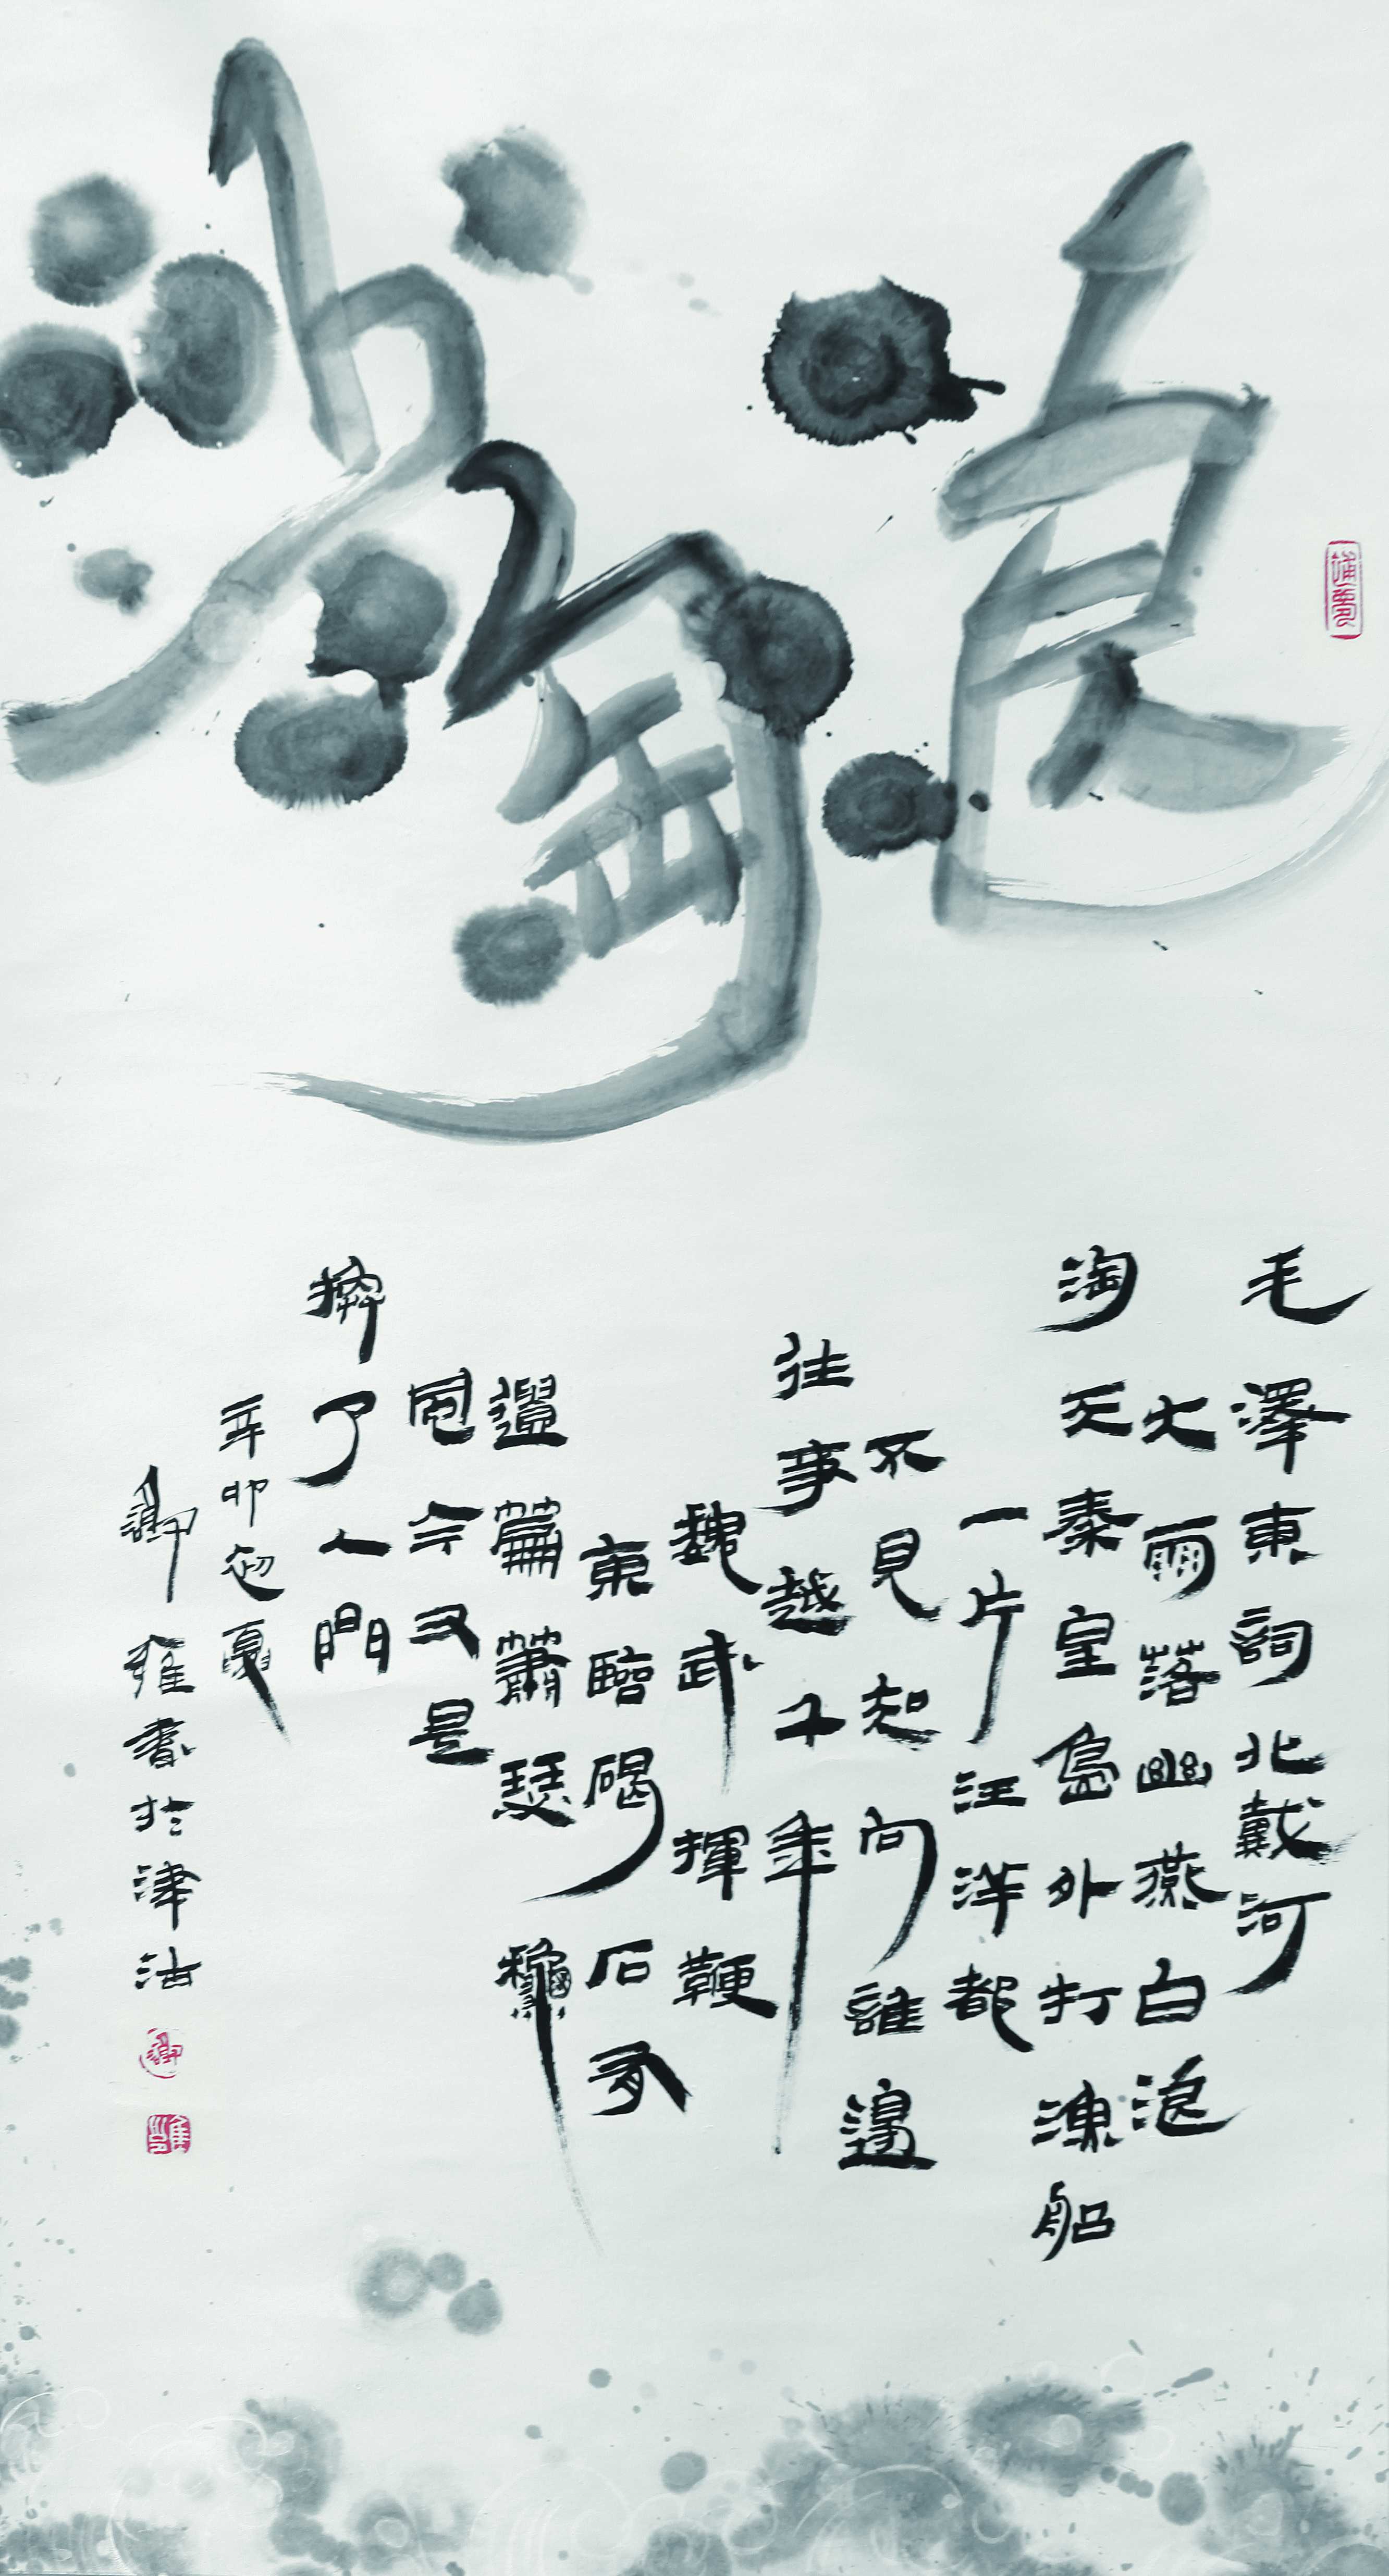 浪淘沙
毛澤東詞北戴河
大雨落幽燕白浪
淘天秦皇島外打漁船
一片汪洋都
不見知向誰邊
往事越千年
魏武揮鞭
東臨碣石有
遺篇蕭瑟龝
風今又是
換了人間
辛卯初夏
書於津沽